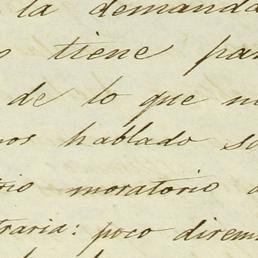 la demanda
tiene par
de lo que
hablado
moratorio
traria: poco direm